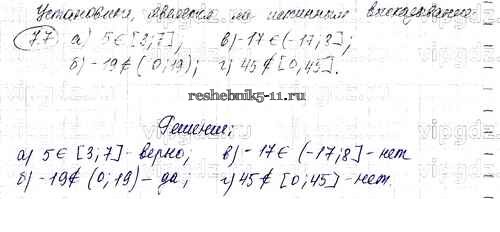 Установить, является ли истинным высказывание
77 а) 5 ∈ [3; 7]; в) -17 ∈ (-17; 8];
б) -19 ∉ (0; 19); г) 45 ∉ [0; 45].
reshebnik5-11.ru
Решение:
а) 5 ∈ [3; 7] - верно; в) - 17 ∈ (-17; 8] - нет
б) -19 ∉ (0; 19) - да; г) 45 ∉ [0; 45] - нет.